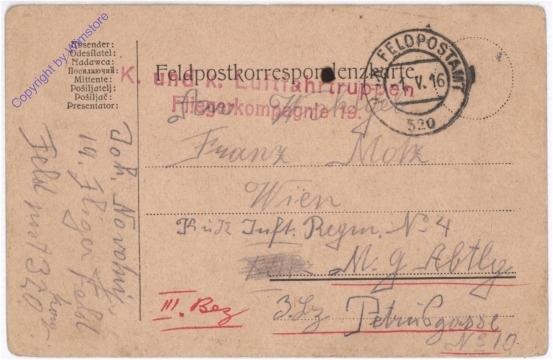 Copyright by Wamstore
Absender:
Odesílatel:
Nadawca:
Посилаючий:
Mittente:
Pošiljatelj:
Pošiljač:
Presentator:
Feldpostkorrespondenzkarte
K. und k. Luftfahrtruppen
Fliegerkompagnie 19.
K.u.K. FELDPOSTAMT
V. 16
320
Franz Motz
Wien
K u K Inft. Regm. No 4
M. g Abtlg
III. Bez
Petrusgasse
No 10
Joh. Novotny
19. Flieger
Feld